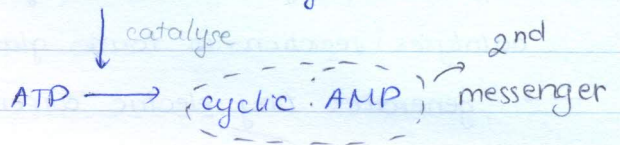 catalyse
2nd
ATP → cyclic AMP messenger